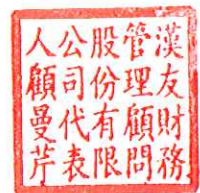 漢友財務
管理顧問
股份有限
公司代表
人顧曼芹